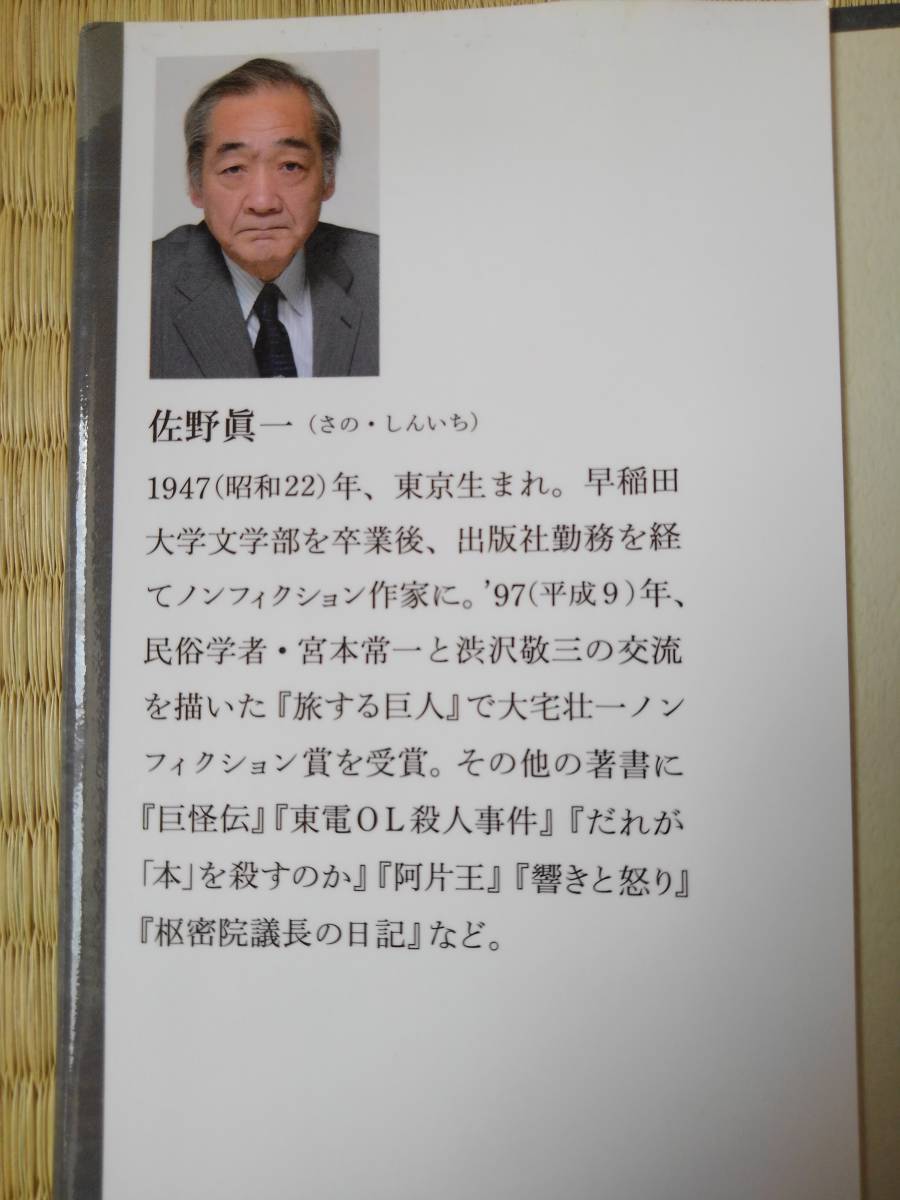 佐野眞一（さの・しんいち）
1947（昭和22）年、東京生まれ。早稲田
大学文学部を卒業後、出版社勤務を経
てノンフィクション作家に。’97（平成９）年、
民俗学者・宮本常一と渋沢敬三の交流
を描いた『旅する巨人』で大宅壮一ノン
フィクション賞を受賞。その他の著書に
『巨怪伝』『東電ＯＬ殺人事件』『だれが
「本」を殺すのか』『阿片王』『響きと怒り』
『枢密院議長の日記』など。